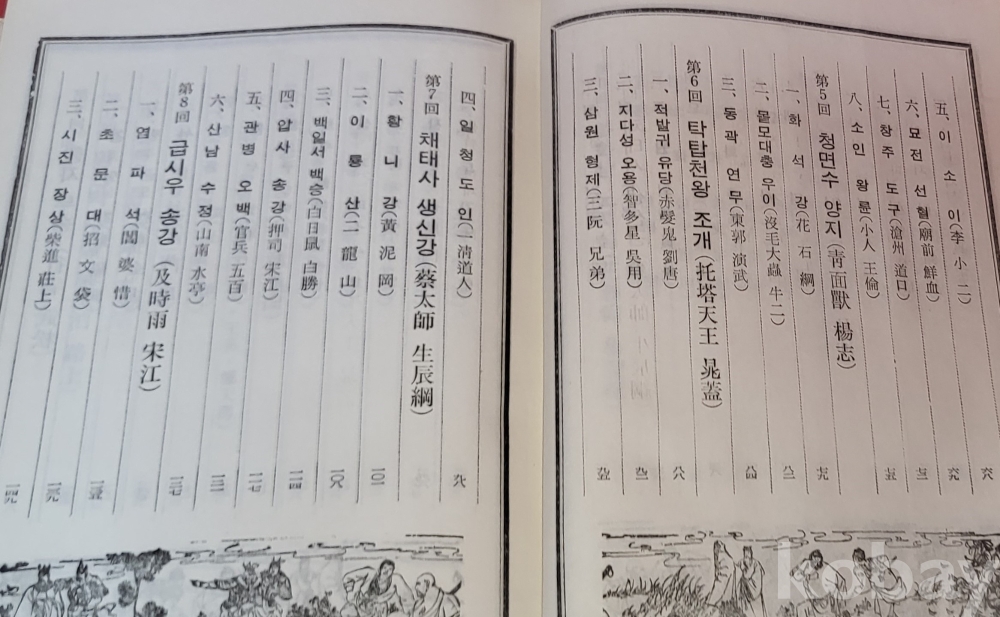 五、이 소 이(李 小 二) 六六
六、묘전 선혈(廟前 鮮血) 六九
七、창주 도구(滄州 道口) 七三
八、소인 왕륜(小人 王倫) 七五
第5回 청면수 양지(靑面獸 楊志)
一、화 석 강(花 石 綱) 七九
二、몰모대충 우이(沒毛大蟲 牛二) 八二
三、동곽 연무(東郭 演武) 八四
第6回 탁탑천왕 조개(托塔天王 晁蓋)
一、적발귀 유당(赤髮鬼 劉唐) 八八
二、지다성 오용(智多星 吳用) 九二
三、삼원 형제(三阮 兄弟) 九五
四、일청도인(一淸道人) 九七
第7回 채태사 생신강(蔡太師 生辰綱)
一、황 니 강(黃 泥 岡) 一〇一
二、이 룡 산(二 龍 山) 一〇八
三、백일서 백승(白日鼠 白勝) 一一四
四、압사 송강(押司 宋江)
五、관병 오백(官兵 五百)
六、산남 수정(山南 水亭)
第8回 급시우 송강(及時雨 宋江)
一、염 파 석(閻 婆 惜)
二、초 문 대(招 文 袋)
三、시진 장상(柴進 莊上) 一四九
kobay